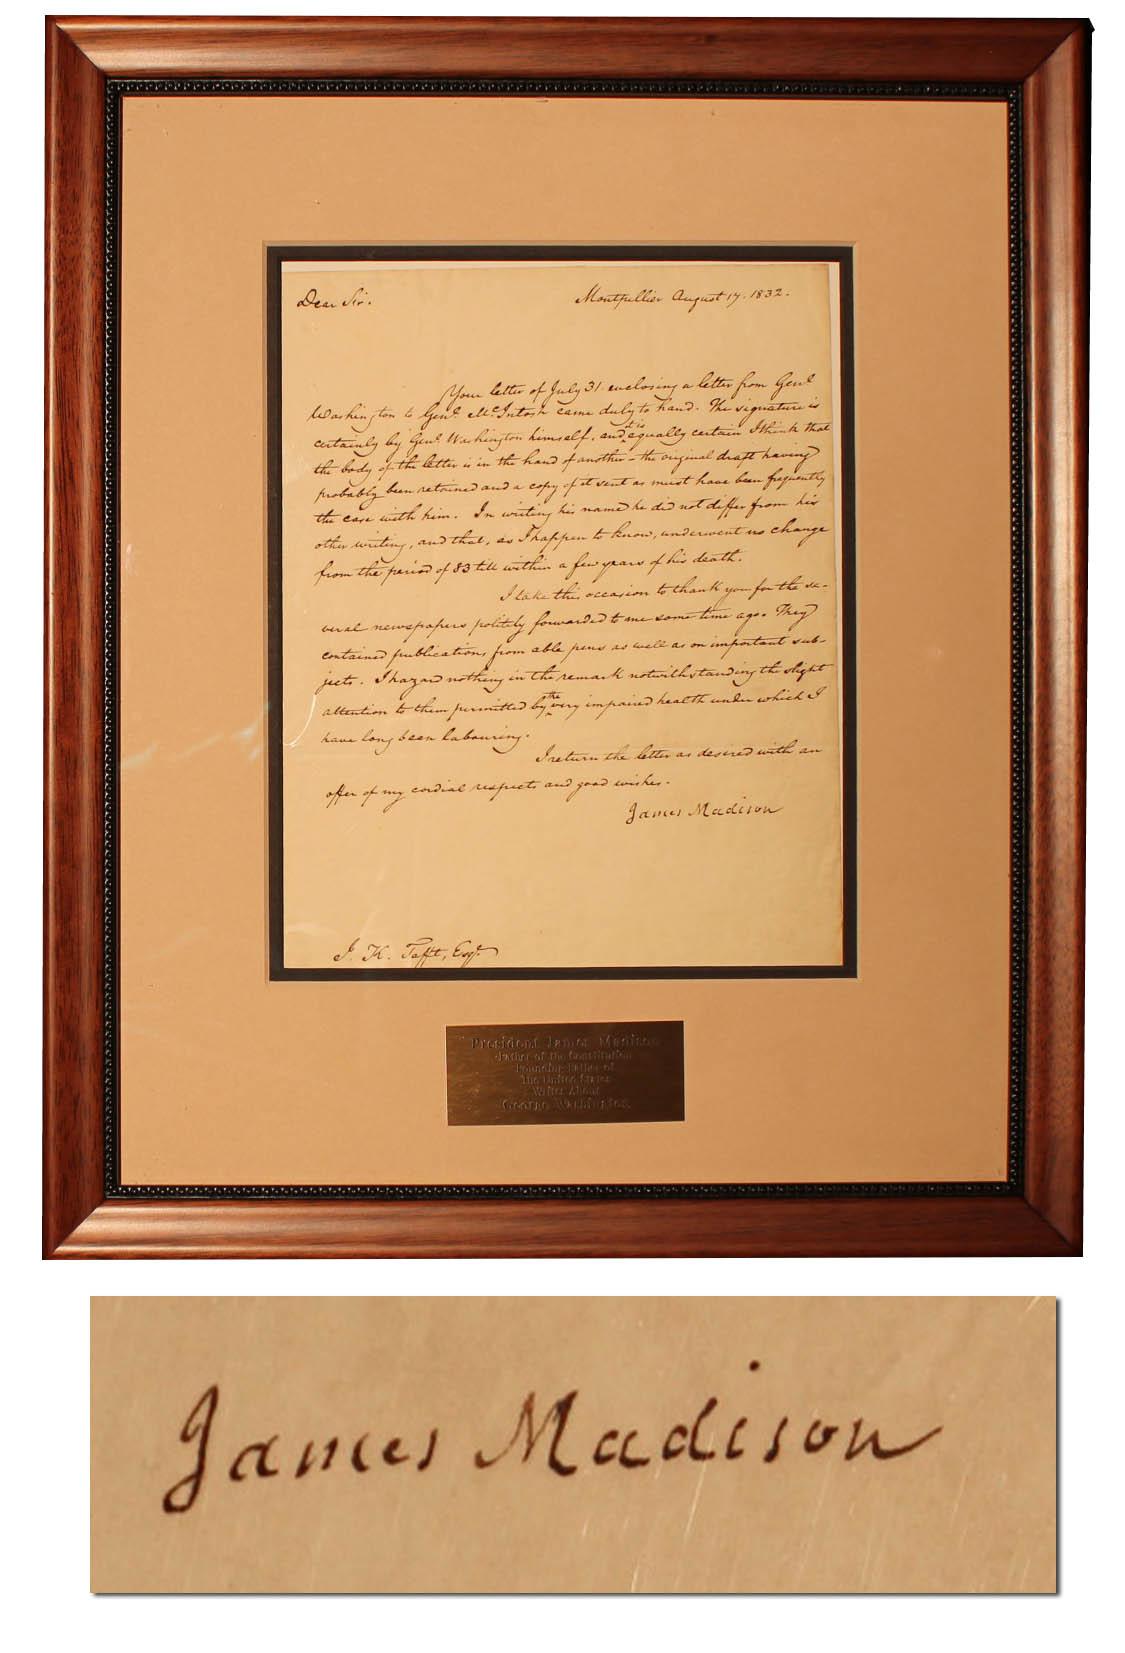 Dear Sir. Montpellier August 17. 1832.
Your letter of July 31 enclosing a letter from Genl
Washington to Genl. McIntosh came duly to hand. The signature is
certainly by Genl Washington himself, and it is equally certain I think that
the body of the letter is in the hand of another - the original draft having
probably been retained and a copy of it sent as must have been frequently
the case with him. In writing his name he did not differ from his
other writing, and that, as I happen to know, underwent no change
from the period of 83 till within a few years of his death.
I take this occasion to thank you for the se-
veral newspapers politely forwarded to me some time ago. They
contained publications from able pens as well as on important sub-
jects. I hazard nothing in the remark notwithstanding the slight
attention to them permitted by the very impaired health under which I
have long been labouring.
I return the letter as desired with an
offer of my cordial respects and good wishes.
James Madison
J. K. Tefft, Esqr.
President James Madison
Father of the Constitution
Founding Father of
The United States
Writes About
George Washington
James Madison